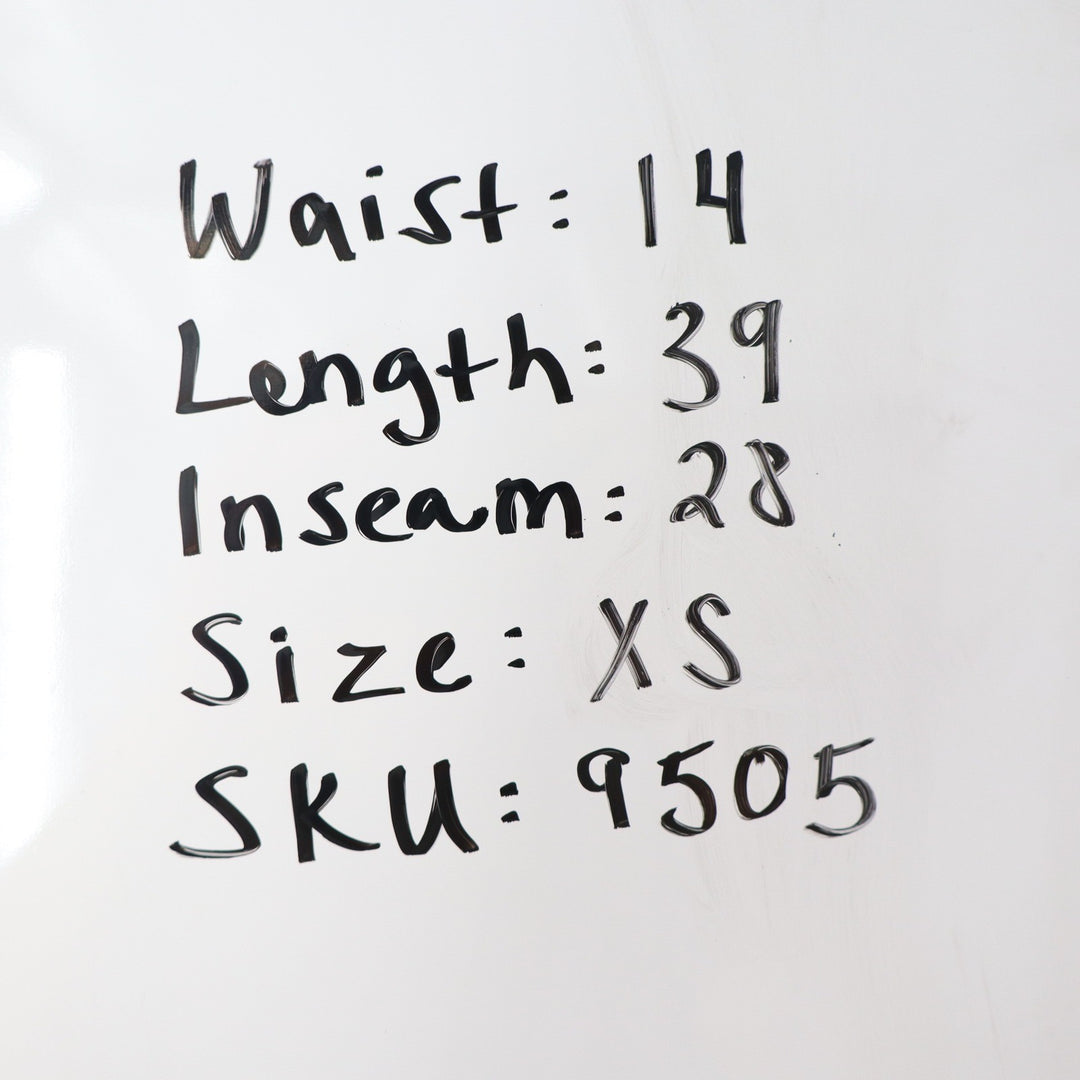 Waist: 14
Length: 39
Inseam: 28
Size: XS
SKU: 9505